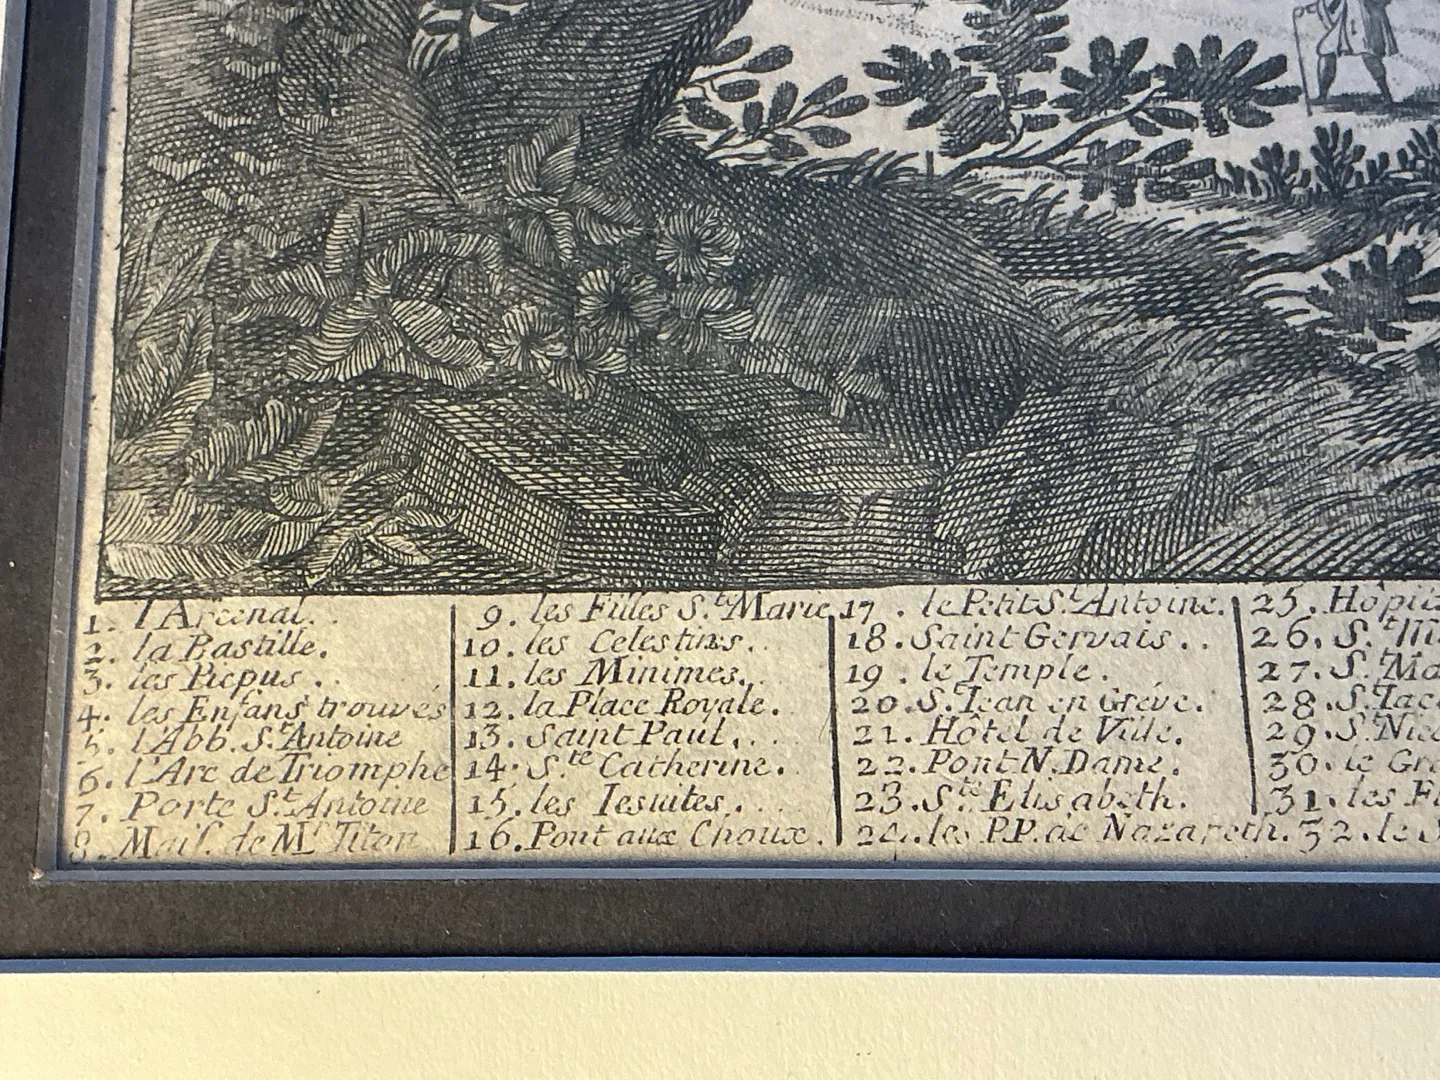 1. l'Arcenal..
2. la Bastille.
3. les Picpus..
4. les Enfans trouvés
5. l'Abb. St. Antoine
6. l'Arc de Triomphe
7. Porte St. Antoine
8. Mais. de Mr. Titon
9. les Filles Ste. Marie
10. les Celestins..
11. les Minimes..
12. la Place Royale.
13. Saint Paul....
14. Ste Catherine.
15. les Iesuites...
16. Pont aux Choux.
17. le Petit St. Antoine.
18. Saint Gervais..
19. le Temple.
20. S. Iean en Grève.
21. Hôtel de Ville.
22. Pont N. Dame.
23. Ste Elisabeth.
24. les P.P. de Nazareth.
25.
26. St.
27. St.
28. S.
29. S.
30. le
31. les
32. le